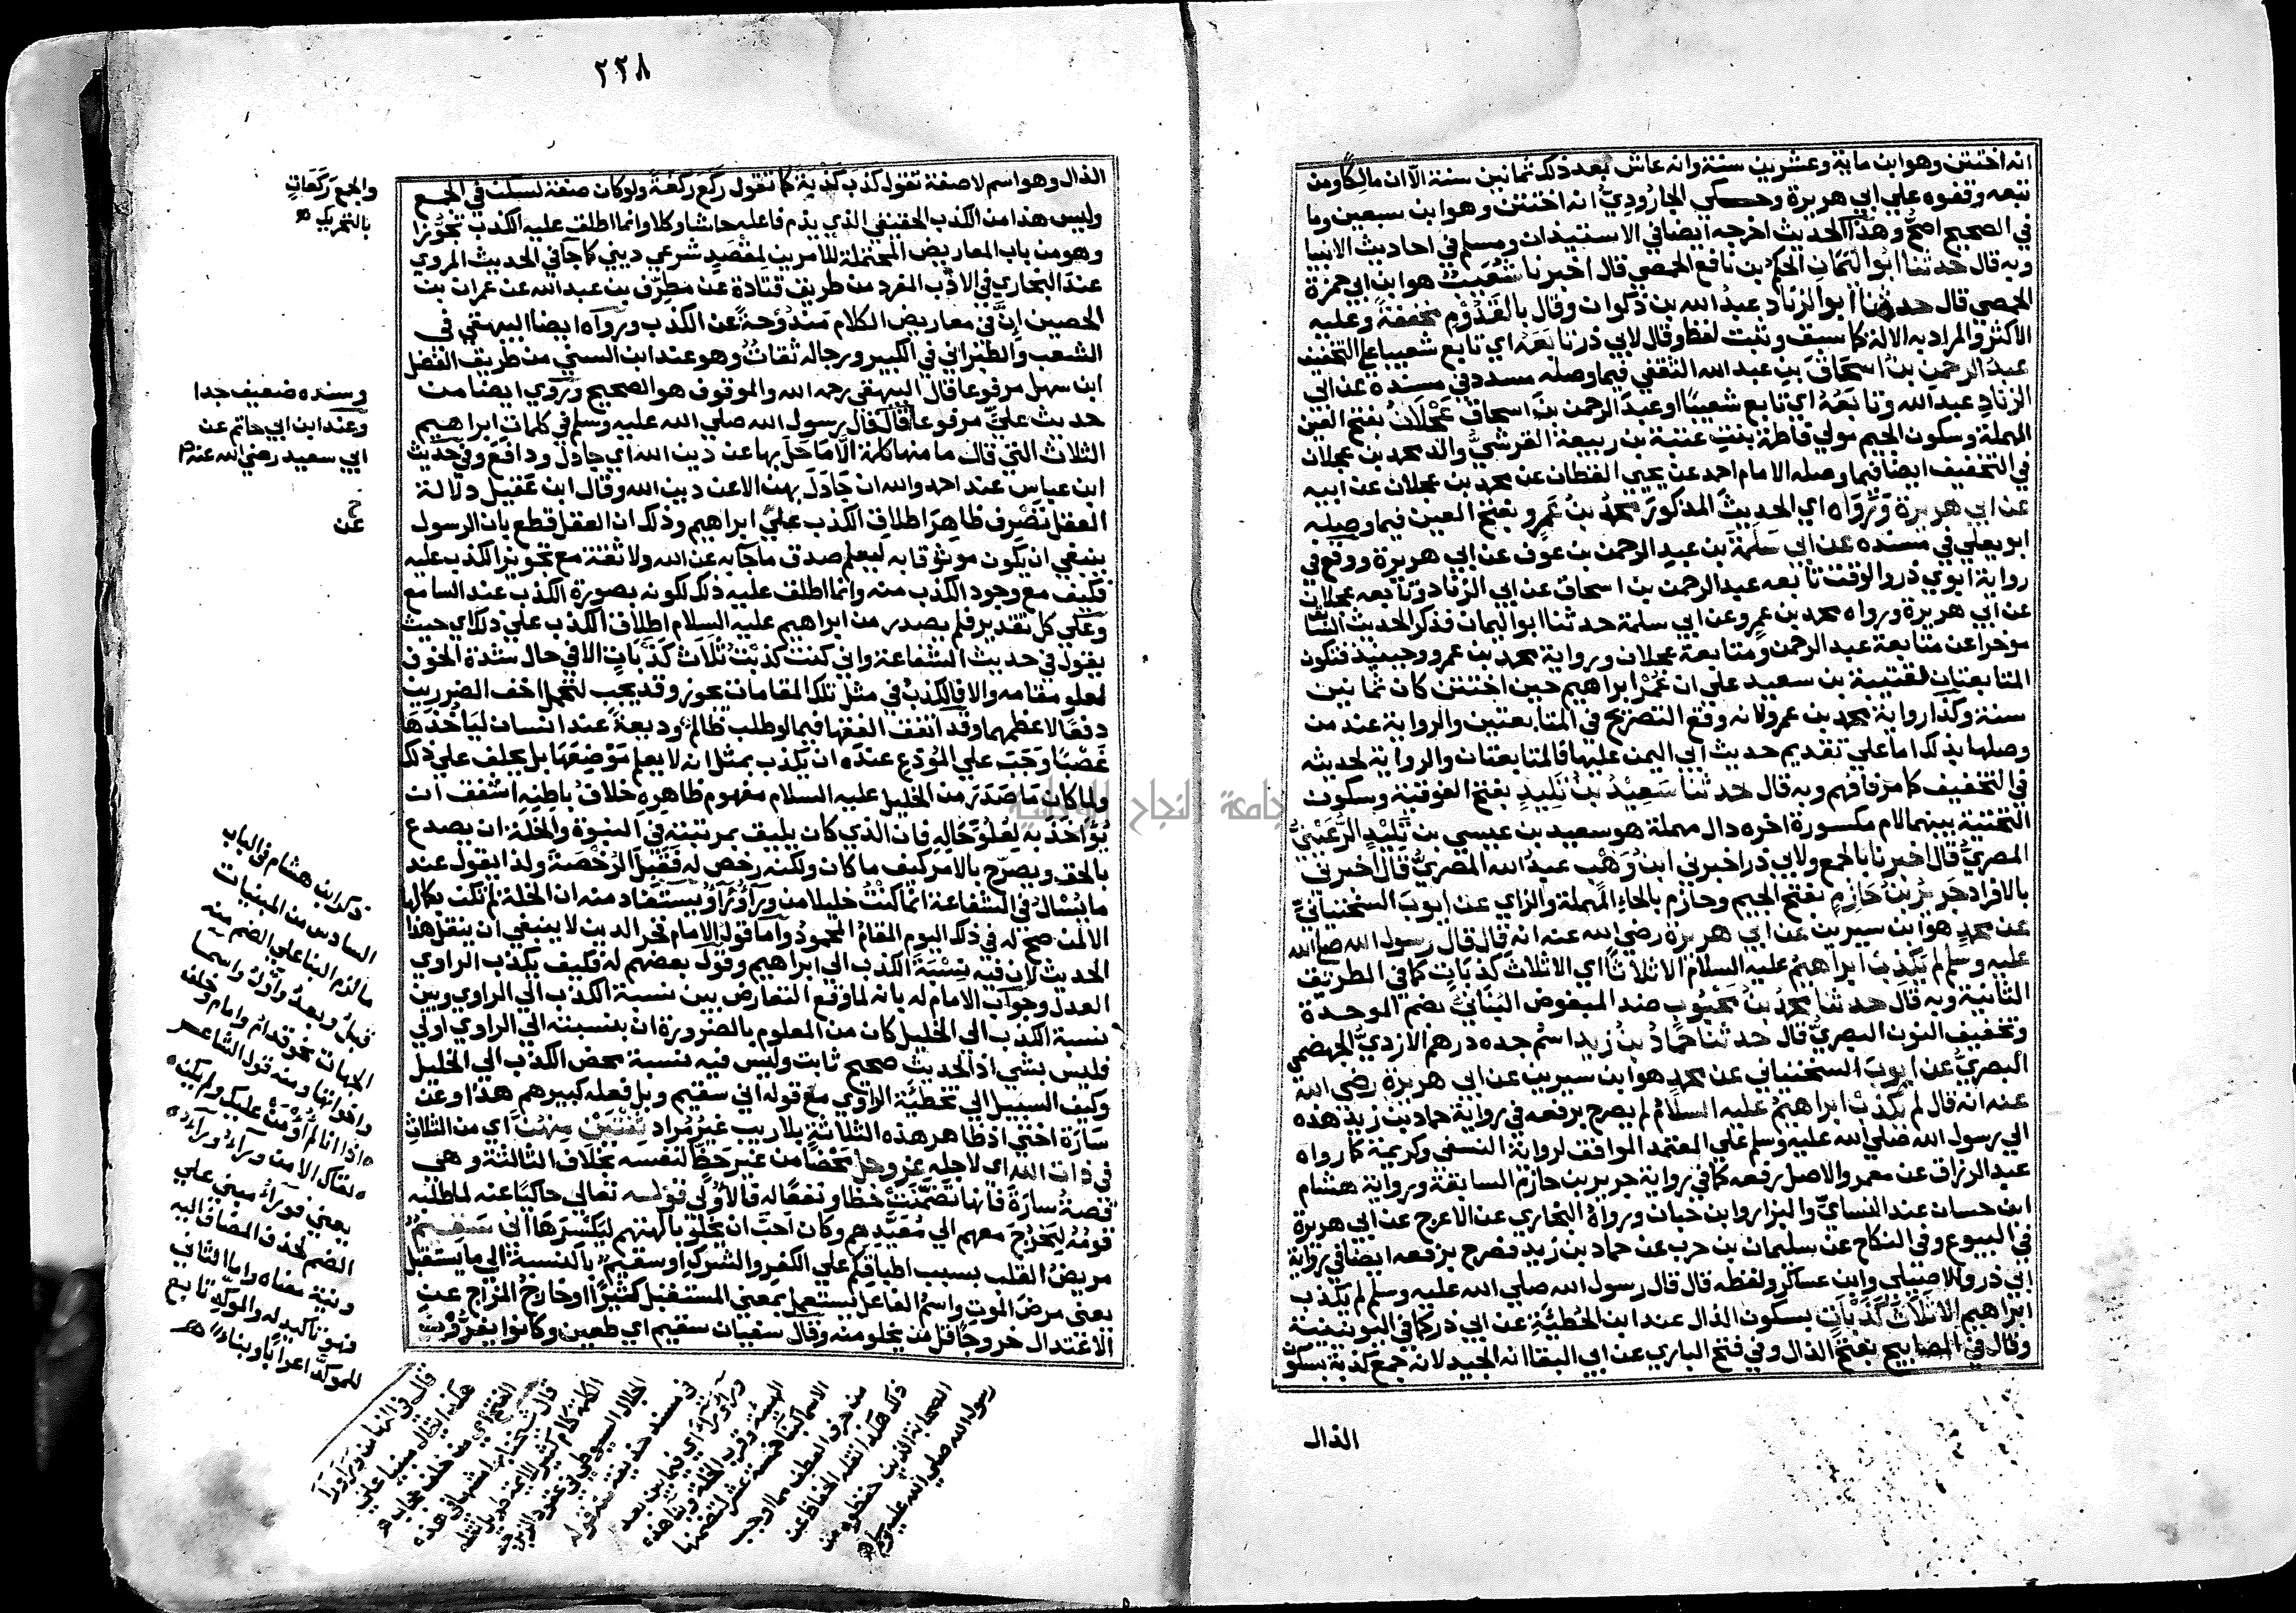 انه اختتن وهو ابن ماية وعشرين سنة وانه عاش بعد ذلك ثمانين سنة الا ان مالكا ومن
تبعه وقفوه علي ابي هريرة وحكي الجارودي انه اختتن وهو ابن سبعين وما
في الصحيح اصح وهذا الحديث اخرجه ايضا في الاستيذان ومسلم في احاديث الانبيا
وبه قال حدثنا ابو اليمان الحكم بن نافع الحمصي قال اخبرنا شعيب هو ابن ابي حمزة
الحمصي قال حدثنا ابو الزناد عبد الله بن ذكوان وقال بالقدوم مخففة وعليه
الاكثر والمراد به الالة كما سبق وثبت لفظ وقال لابي ذر تابعه اي تابع شعيبا علي التخفيف
عبد الرحمن بن اسحاق بن عبد الله الثقفي فيما وصله مسدد في مسنده عن ابي
الزناد عبد الله وتابعه اي تابع شعيبا او عبد الرحمن بن اسحاق عجلان بفتح العين
المهملة وسكون الجيم مولي فاطمة بنت عتبة بن ربيعة القرشي والد محمد بن عجلان
في التخفيف ايضا فيما وصله الامام احمد عن يحيي القطان عن محمد بن عجلان عن ابيه
عن ابي هريرة ورواه اي الحديث المذكور محمد بن عمرو بفتح العين فيما وصله
ابو يعلي في مسنده عن ابي سلمة بن عبد الرحمن بن عوف عن ابي هريرة ووقع في
رواية ابوي ذر والوقت تابعه عبد الرحمن بن اسحاق عن ابي الزناد وتابعه عجلان
عن ابي هريرة ورواه محمد بن عمرو عن ابي سلمة حدثنا ابو اليمان فذكر الحديث السابق
موخرا عن متابعة عبد الرحمن ومتابعة عجلان ورواية محمد بن عمرو وحينيذ فتكون
المتابعتان لقتيبة بن سعيد علي ان عمر ابراهيم حين اختتن كان ثمانين
سنة وكذا رواية محمد بن عمرو لانه وقع التصريح في المتابعتين والرواية عند من
وصلها بذلك اما علي تقديم حديث ابي اليمن عليها فالمتابعتان والرواية لحديثه
في التخفيف كما مر فافهم وبه قال حدثنا سعيد بن تليد بفتح الفوقية وسكون
التحتية بينهما لام مكسورة اخره دال مهملة هو سعيد بن عيسي بن تليد الرعيني
المصري قال اخبرنا بالجمع ولابي ذر اخبرني ابن وهب عبد الله المصري قال اخبرني
بالافراد جرير بن حازم بفتح الجيم وحازم بالحاء المهملة والزاي عن ايوب السختياني
عن محمد هو ابن سيرين عن ابي هريرة رضي الله عنه انه قال قال رسول الله صلي الله
عليه وسلم لم يكذب ابراهيم عليه السلام الا ثلاثا اي الا ثلاث كذبات كما في الطريق
الثانية وبه قال حدثنا محمد بن محبوب ضد المبغوض البناني بضم الموحدة
وتخفيف النون البصري قال حدثنا حماد بن زيد اسم جده درهم الازدي الجهضمي
البصري عن ايوب السختياني عن محمد هو ابن سيرين عن ابي هريرة رضي الله
عنه انه قال لم يكذب ابراهيم عليه السلام لم يصرح برفعه في رواية حماد بن زيد هذه
الي رسول الله صلي الله عليه وسلم علي المعتمد الموافق لرواية النسفي وكريمة كما رواه
عبد الرزاق عن معمر والاصل رفعه كما في رواية جرير بن حازم السابقة ورواية هشام
ابن حسان عند النساي والبزار وابن حبان ورواه البخاري عن الاعرج عن ابي هريرة
في البيوع وفي النكاح عن سليمان بن حرب عن حماد بن زيد فصرح برفعه ايضا في رواية
ابي ذر والاصيلي وابن عساكر ولفظه قال قال رسول الله صلي الله عليه وسلم لم يكذب
ابراهيم الا ثلاث كذبات بسكون الذال عند ابن الحطيئة عن ابي ذر كما في اليونينية
وقال في المصابيح بفتح الذال وفي فتح الباري عن ابي البقا انه الجيد لانه جمع كذبة بسكون
الذال
٢٢٨
الذال وهو اسم لا صفة تقول كذب كذبة كما تقول ركع ركعة ولو كان صفة لسكن في الجمع
وليس هذا من الكذب الحقيقي الذي يذم فاعله حاشا وكلا وانما اطلق عليه الكذب تجوزا
وهو من باب المعاريض المحتملة للامرين لمقصد شرعي ديني كما جا في الحديث المروي
عند البخاري في الادب المفرد من طريق قتادة عن مطرف بن عبد الله عن عمران بن
الحصين ان في معاريض الكلام مندوحة عن الكذب ورواه ايضا البيهقي في
الشعب والطبراني في الكبير ورجاله ثقات وهو عند ابن السني من طريق الفضل
ابن سهل مرفوعا قال البيهقي رحمه الله والموقوف هو الصحيح وروي ايضا من
حديث علي مرفوعا قال قال رسول الله صلي الله عليه وسلم في كلمات ابراهيم
الثلاث التي قال ما منها كلمة الا ما حل بها عن دين الله اي جادل ودافع وفي حديث
ابن عباس عند احمد والله ان جادل بهن الا عن دين الله وقال ابن عقيل دلالة
العقل تصرف ظاهر اطلاق الكذب علي ابراهيم وذلك ان العقل قطع بان الرسول
ينبغي ان يكون موثوقا به ليعلم صدق ما جا به عن الله ولا ثقة مع تجويز الكذب عليه
فكيف مع وجود الكذب منه وانما اطلق عليه ذلك لكونه بصورة الكذب عند السامع
وعلي كل تقدير فلم يصدر من ابراهيم عليه السلام اطلاق الكذب علي ذلك اي حيث
يقول في حديث الشفاعة واني كنت كذبت ثلاث كذبات الا في حال شدة الخوف
لعلو مقامه والا فالكذب في مثل تلك المقامات يجوز وقد يجب لتحمل اخف الضررين
دفعا لاعظمهما وقد اتفق الفقها فيما لو طلب ظالم وديعة عند انسان لياخذها
غصبا وجب علي المودع عنده ان يكذب بمثل انه لا يعلم موضعها بل يحلف علي ذلك
ولما كان ما صدر من الخليل عليه السلام مفهوم ظاهره خلاف باطنه اشفق ان
يؤاخذ به لعلو حاله فان الذي كان يليق بمرتبته في النبوة والخلة ان يصدع
بالحق ويصرح بالامر كيف ما كان ولكنه رخص له فقبل الرخصة ولذا يقول عند
ما يسال في الشفاعة انما كنت خليلا من وراء وراء ويستفاد منه ان الخلة لم تكن بكمالها
الا لمن صح له في ذلك اليوم المقام المحمود واما قول الامام فخر الدين لا ينبغي ان ينقل هذا
الحديث لان فيه نسبة الكذب الي ابراهيم وقول بعضهم له فكيف يكذب الراوي
العدل وجواب الامام له بانه لما وقع التعارض بين نسبة الكذب الي الراوي وبين
نسبة الكذب الي الخليل كان من المعلوم بالضرورة ان بنسبته الي الراوي اولي
فليس بشي اذ الحديث صحيح ثابت وليس فيه نسبة محض الكذب الي الخليل
وكيف السبيل الي تخطية الراوي مع قوله اني سقيم وبل فعله كبيرهم هذا وعن
سارة اختي اذ ظاهر هذه الثلاثة بلا ريب غير مراد ثنتين منهن اي من الثلاث
في ذات الله اي لاجله عز وجل محضا من غير حظ لنفسه بخلاف الثالثة وهي
قصة سارة فانها تضمنت حظا ونفعا له فالاولي قوله تعالي حاكيا عنه لما طلبه
قومه ليخرج معهم الي معيدهم وكان احب ان يخلو بالهتهم ليكسرها اني سقيم
مريض القلب بسبب اطباقكم علي الكفر والشرك او سقيم بالنسبة الي ما يستقبل
يعني مرض الموت واسم الفاعل يستعمل بمعني المستقبل كثيرا او خارج المزاج عن
الاعتدال خروجا قل من يخلو منه وقال سفيان سقيم اي طعين وكانوا يفرون
والجمع ركعات
بالتحريك
وسنده ضعيف جدا
وعند ابن ابي حاتم عن
ابي سعيد رضي الله عنه
عن
ذكر ابن هشام في الباب
السادس من المبنيات
ما لزم البنا علي الضم منه
قبل وبعد واول واسما
الجهات نحو قدام وامام وخلف
واخواتها ومنه قول الشاعر
اذا انا لم اومن عليك ولم يكن
لقاك الا من وراء وراء
يعني فوراء مبني علي
الضم لحذف المضاف اليه
ونية معناه واما الثاني
فهو تاكيد له والموكد تابع
للموكد اعرابا وبناء
قال في
هكذا يقال مبنيا علي
الفتح اي من خلف حجاب
قال شيخنا
في مسند حذيفة
الجلال السيوطي في عقود الزبرجد
ذكر هكذا نقله الحفاظ عن
الصحابة الذين حفظوه من
رسول الله صلي الله عليه وسلم
جامعة النجاح الوطنية